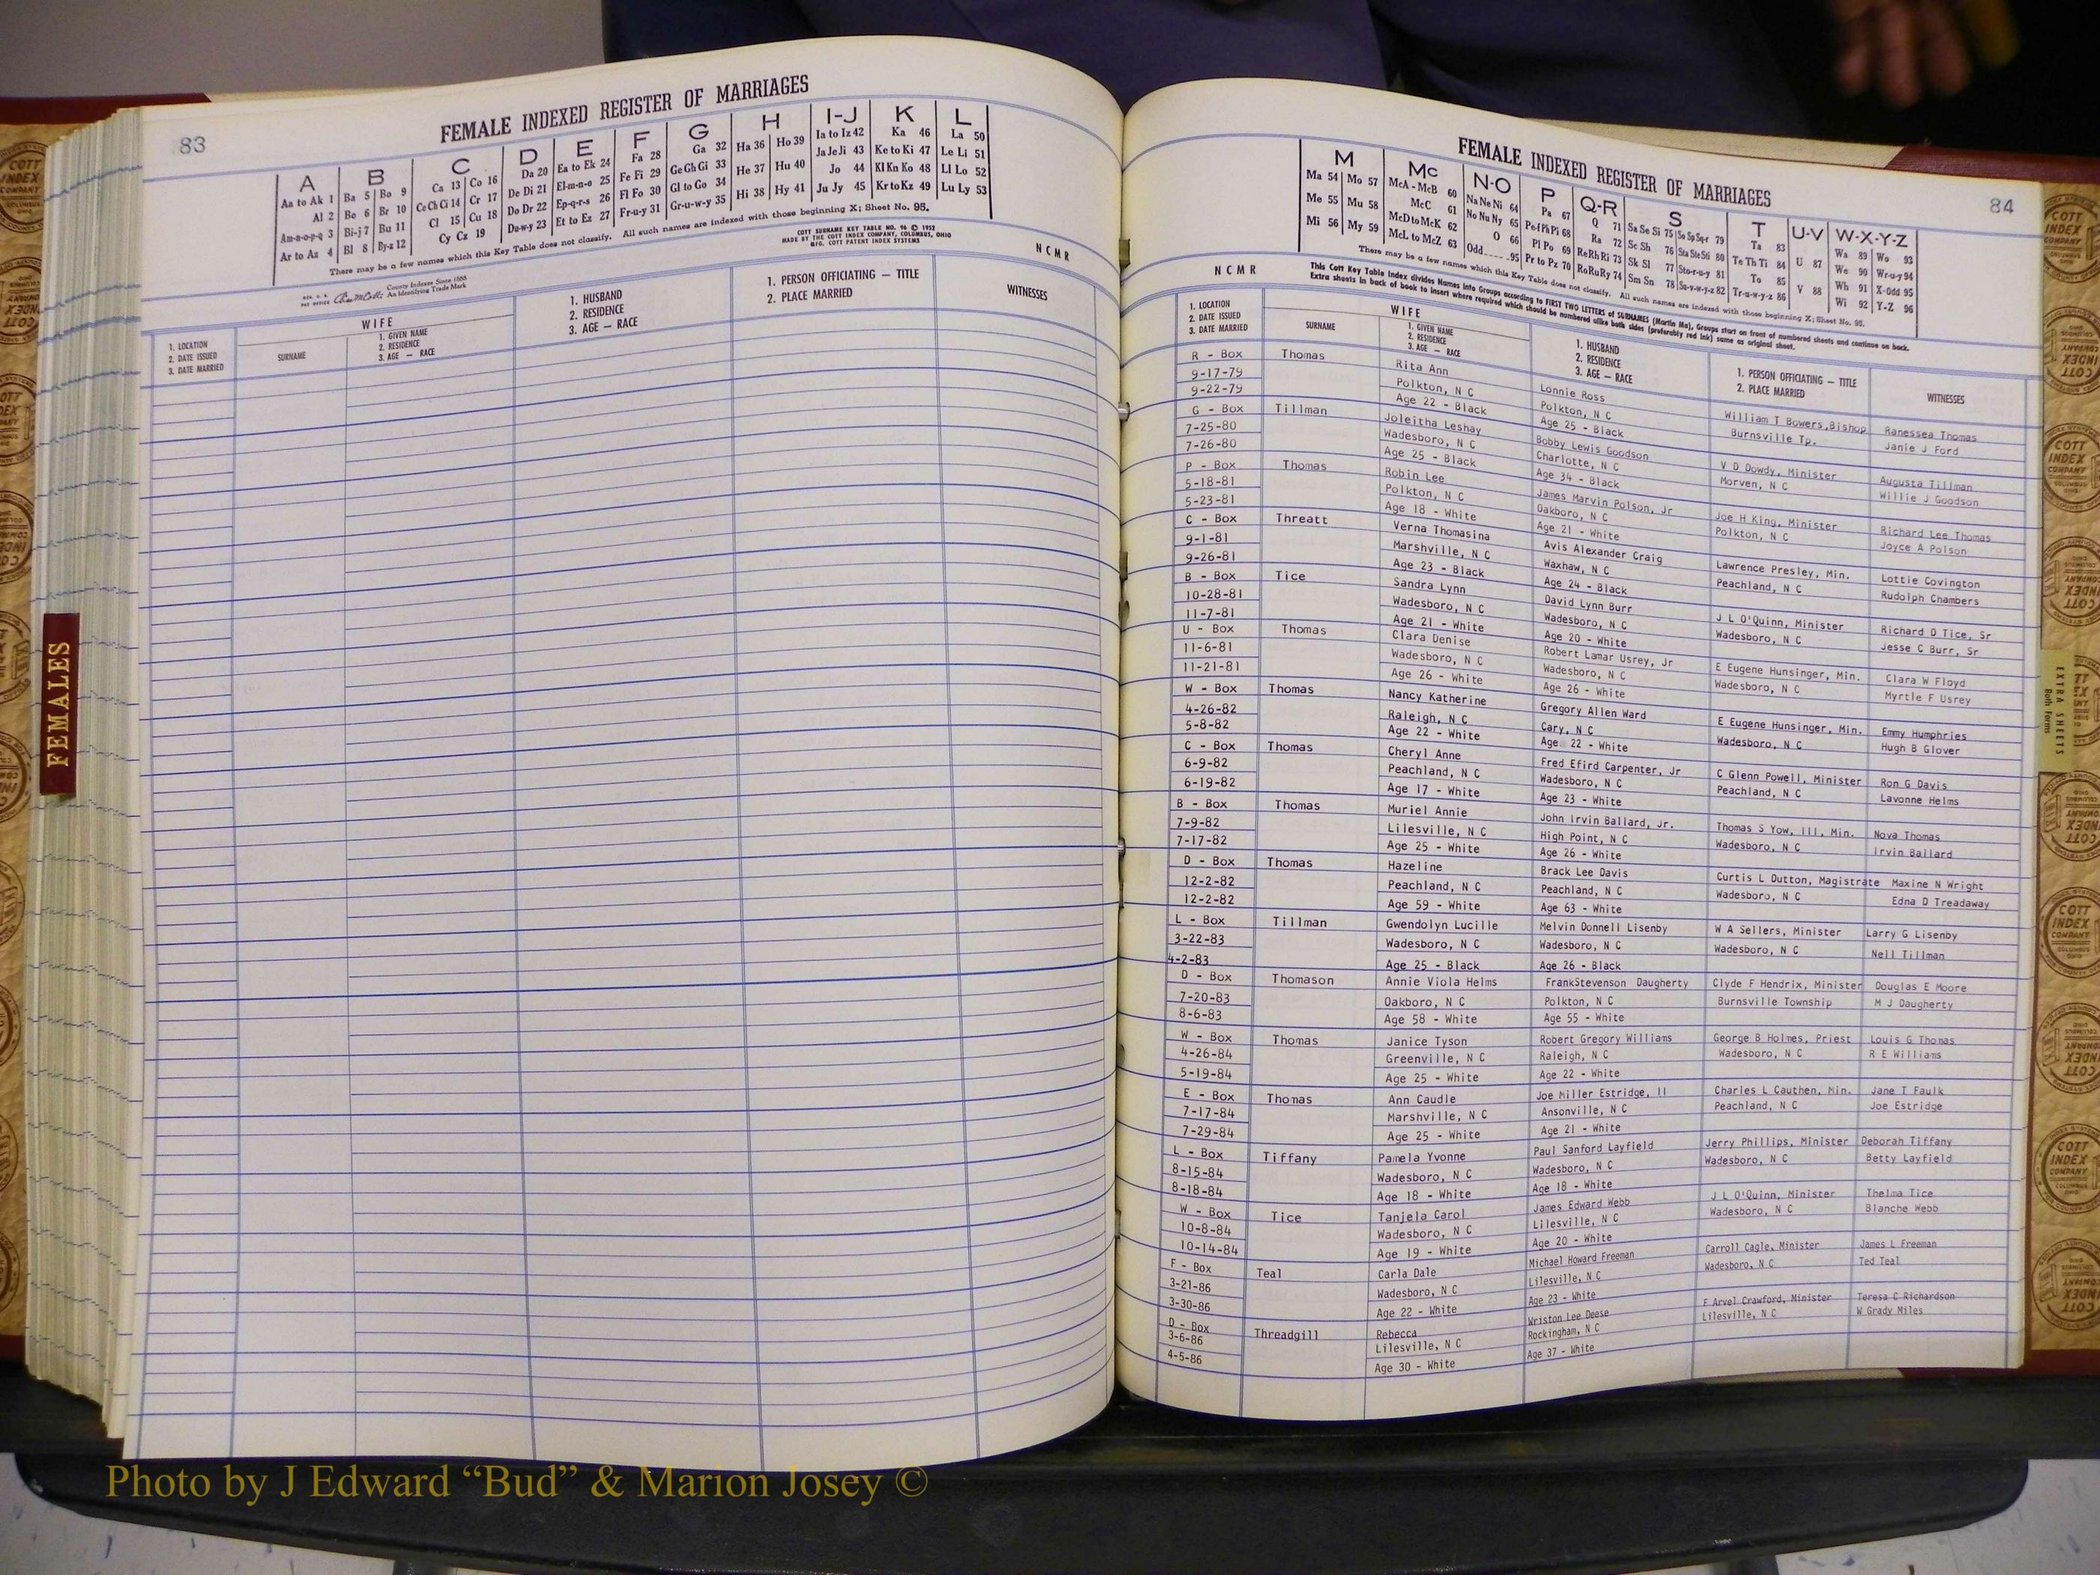 83
FEMALE INDEXED REGISTER OF MARRIAGES
A
Aa to Ak 1
Al 2
Am-n-o-p-q 3
Ar to Az 4
B
Ba 5 Bo 9
Be 6 Br 10
Bi-j 7 Bu 11
Bl 8 By-z 12
C
Ca 13 Co 16
Ce Ch Ci 14 Cr 17
Cl 15 Cu 18
Cy Cz 19
D
Da 20
De Di 21
Do Dr 22
Du-w-y 23
E
Ea to Ek 24
El-m-n-o 25
Ep-q-r-s 26
Et to Ez 27
F
Fa 28
Fe Fi 29
Fl Fo 30
Fr-u-y 31
G
Ga 32
Ge Gh Gi 33
Gl to Go 34
Gr-u-w-y 35
H
Ha 36 Ho 39
He 37 Hu 40
Hi 38 Hy 41
I-J
Ia to Iz 42
Ja Je Ji 43
Jo 44
Ju Jy 45
K
Ka 46
Ke to Ki 47
Kl Kn Ko 48
Kr to Kz 49
L
La 50
Le Li 51
Ll Lo 52
Lu Ly 53
There may be a few names which this Key Table does not classify. All such names are indexed with those beginning X; Sheet No. 95.
County Indexes Since 1888
An Identifying Trade Mark
COTT SURNAME KEY TABLE NO. 96 © 1952
MADE BY THE COTT INDEX COMPANY, COLUMBUS, OHIO
MFG. COTT PATENT INDEX SYSTEMS
NCMR
1. LOCATION
2. DATE ISSUED
3. DATE MARRIED
WIFE
SURNAME
1. GIVEN NAME
2. RESIDENCE
3. AGE — RACE
1. HUSBAND
2. RESIDENCE
3. AGE — RACE
1. PERSON OFFICIATING — TITLE
2. PLACE MARRIED
WITNESSES
FEMALES
FEMALE INDEXED REGISTER OF MARRIAGES
84
M
Ma 54 Mo 57
Me 55 Mu 58
Mi 56 My 59
Mc
McA - McB 60
McC 61
McD to McK 62
McL to McZ 63
N-O
Na Ne Ni 64
No Nu Ny 65
O 66
Odd 95
P
Pa 67
Pe-f Ph Pi 68
Pl Po 69
Pr to Pz 70
Q-R
Q 71
Ra 72
Re Rh Ri 73
Ro Ru Ry 74
S
Sa Se Si 75 So Sp Sq-r 79
Sc Sh 76 Sta Ste Sti 80
Sk Sl 77 Sto-r-u-y 81
Sm Sn 78 Su-v-w-y-z 82
T
Ta 83
Te Th Ti 84
To 85
Tr-u-w-y-z 86
U-V
U 87
V 88
W-X-Y-Z
Wa 89 Wo 93
We 90 Wr-u-y 94
Wh 91 X-Odd 95
Wi 92 Y-Z 96
There may be a few names which this Key Table does not classify. All such names are indexed with those beginning X; Sheet No. 95.
NCMR
This Cott Key Table Index divides Names into Groups according to FIRST TWO LETTERS of SURNAMES (Martin Ma), Groups start on front of numbered sheets and continue on back.
Extra sheets in back of book to insert where required which should be numbered alike both sides (preferably red ink) same as original sheet.
1. LOCATION
2. DATE ISSUED
3. DATE MARRIED
WIFE
SURNAME
1. GIVEN NAME
2. RESIDENCE
3. AGE — RACE
1. HUSBAND
2. RESIDENCE
3. AGE — RACE
1. PERSON OFFICIATING — TITLE
2. PLACE MARRIED
WITNESSES
R - Box Thomas Rita Ann Lonnie Ross William T Bowers, Bishop Ranessea Thomas
9-17-79 Polkton, N C Polkton, N C Burnsville Tp. Janie J Ford
9-22-79 Age 22 - Black Age 25 - Black
G - Box Tillman Joleitha Leshay Bobby Lewis Goodson V D Dowdy, Minister Augusta Tillman
7-25-80 Wadesboro, N C Charlotte, N C Morven, N C Willie J Goodson
7-26-80 Age 25 - Black Age 34 - Black
P - Box Thomas Robin Lee James Marvin Polson, Jr Joe H King, Minister Richard Lee Thomas
5-18-81 Polkton, N C Oakboro, N C Polkton, N C Joyce A Polson
5-23-81 Age 18 - White Age 21 - White
C - Box Threatt Verna Thomasina Avis Alexander Craig Lawrence Presley, Min. Lottie Covington
9-1-81 Marshville, N C Waxhaw, N C Peachland, N C Rudolph Chambers
9-26-81 Age 23 - Black Age 24 - Black
B - Box Tice Sandra Lynn David Lynn Burr J L O'Quinn, Minister Richard D Tice, Sr
10-28-81 Wadesboro, N C Wadesboro, N C Wadesboro, N C Jesse C Burr, Sr
11-7-81 Age 21 - White Age 20 - White
U - Box Thomas Clara Denise Robert Lamar Usrey, Jr E Eugene Hunsinger, Min. Clara W Floyd
11-6-81 Wadesboro, N C Wadesboro, N C Wadesboro, N C Myrtle F Usrey
11-21-81 Age 26 - White Age 26 - White
W - Box Thomas Nancy Katherine Gregory Allen Ward E Eugene Hunsinger, Min. Emmy Humphries
4-26-82 Raleigh, N C Cary, N C Wadesboro, N C Hugh B Glover
5-8-82 Age 22 - White Age 22 - White
C - Box Thomas Cheryl Anne Fred Efird Carpenter, Jr C Glenn Powell, Minister Ron G Davis
6-9-82 Peachland, N C Wadesboro, N C Peachland, N C Lavonne Helms
6-19-82 Age 17 - White Age 23 - White
B - Box Thomas Muriel Annie John Irvin Ballard, Jr. Thomas S Yow, III, Min. Nova Thomas
7-9-82 Lilesville, N C High Point, N C Wadesboro, N C Irvin Ballard
7-17-82 Age 25 - White Age 26 - White
D - Box Thomas Hazeline Brack Lee Davis Curtis L Dutton, Magistrate Maxine N Wright
12-2-82 Peachland, N C Peachland, N C Wadesboro, N C Edna D Treadaway
12-2-82 Age 59 - White Age 63 - White
L - Box Tillman Gwendolyn Lucille Melvin Donnell Lisenby W A Sellers, Minister Larry G Lisenby
3-22-83 Wadesboro, N C Wadesboro, N C Wadesboro, N C Nell Tillman
4-2-83 Age 25 - Black Age 26 - Black
D - Box Thomason Annie Viola Helms FrankStevenson Daugherty Clyde F Hendrix, Minister Douglas E Moore
7-20-83 Oakboro, N C Polkton, N C Burnsville Township M J Daugherty
8-6-83 Age 58 - White Age 55 - White
W - Box Thomas Janice Tyson Robert Gregory Williams George B Holmes, Priest Louis G Thomas
4-26-84 Greenville, N C Raleigh, N C Wadesboro, N C R E Williams
5-19-84 Age 25 - White Age 22 - White
E - Box Thomas Ann Caudle Joe Miller Estridge, II Charles L Cauthen, Min. Jane T Faulk
7-17-84 Marshville, N C Ansonville, N C Peachland, N C Joe Estridge
7-29-84 Age 25 - White Age 21 - White
L - Box Tiffany Pamela Yvonne Paul Sanford Layfield Jerry Phillips, Minister Deborah Tiffany
8-15-84 Wadesboro, N C Wadesboro, N C Wadesboro, N C Betty Layfield
8-18-84 Age 18 - White Age 18 - White
W - Box Tice Tanjela Carol James Edward Webb J L O'Quinn, Minister Thelma Tice
10-8-84 Wadesboro, N C Lilesville, N C Wadesboro, N C Blanche Webb
10-14-84 Age 19 - White Age 20 - White
F - Box Teal Carla Dale Michael Howard Freeman Carroll Cagle, Minister James L Freeman
3-21-86 Wadesboro, N C Lilesville, N C Wadesboro, N C Ted Teal
3-30-86 Age 22 - White Age 23 - White
D - Box Threadgill Rebecca Wriston Lee Deese F Arvel Crawford, Minister Teresa C Richardson
3-6-86 Lilesville, N C Rockingham, N C Lilesville, N C W Grady Miles
4-5-86 Age 30 - White Age 37 - White
EXTRA SHEETS
Both Forms
Photo by J Edward “Bud” & Marion Josey ©